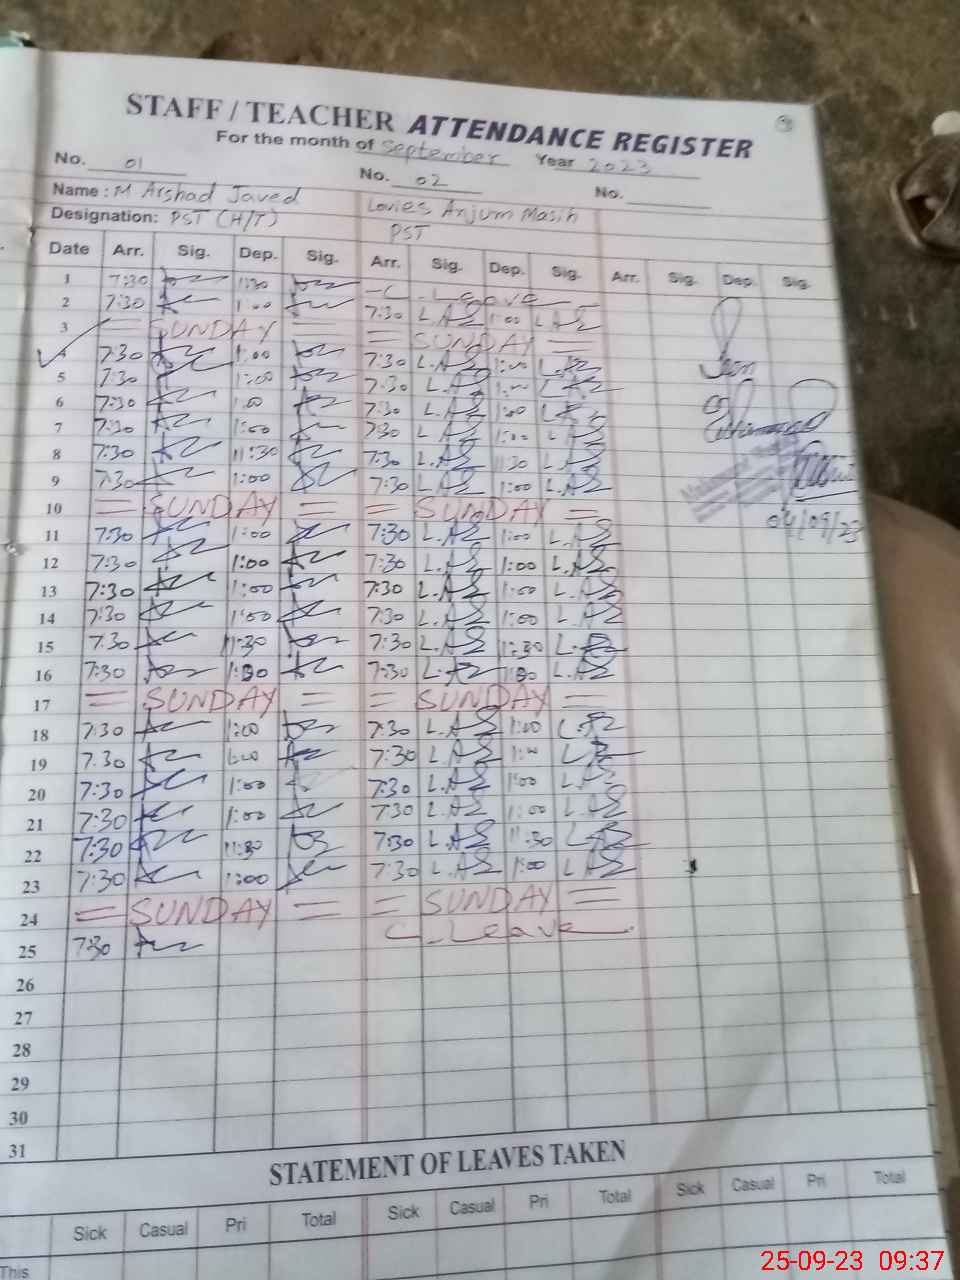 STAFF / TEACHER ATTENDANCE REGISTER
For the month of September Year 2023
No. 01 No. 02 No.
Name : M Arshad Javed Lovies Anjum Masih
Designation: PST (H/T) PST
Date Arr. Sig. Dep. Sig. Arr. Sig. Dep. Sig. Arr. Sig. Dep. Sig.
1 7:30 1:30 C. Leave
2 7:30 1:00 7:30 L.AS 1:00 L.AS
3 = SUNDAY = = SUNDAY =
4 7:30 1:00 7:30 L.AS 1:00 L.AS
5 7:30 1:00 7:30 L.AS 1:00 L.AS
6 7:30 1:00 7:30 L.AS 1:00 L.AS
7 7:30 1:00 7:30 L.AS 1:00 L.AS
8 7:30 11:30 7:30 L.AS 11:30 L.AS
9 7:30 1:00 7:30 L.AS 1:00 L.AS
10 = SUNDAY = = SUNDAY =
04/09/23
11 7:30 1:00 7:30 L.AS 1:00 L.AS
12 7:30 1:00 7:30 L.AS 1:00 L.AS
13 7:30 1:00 7:30 L.AS 1:00 L.AS
14 7:30 1:00 7:30 L.AS 1:00 L.AS
15 7:30 11:30 7:30 L.AS 11:30 L.AS
16 7:30 1:00 7:30 L.AS 1:00 L.AS
17 = SUNDAY = = SUNDAY =
18 7:30 1:00 7:30 L.AS 1:00 L.AS
19 7:30 1:00 7:30 L.AS 1:00 L.AS
20 7:30 1:00 7:30 L.AS 1:00 L.AS
21 7:30 1:00 7:30 L.AS 1:00 L.AS
22 7:30 11:30 7:30 L.AS 11:30 L.AS
23 7:30 1:00 7:30 L.AS 1:00 L.AS
24 = SUNDAY = = SUNDAY =
25 7:30 C. Leave
26
27
28
29
30
31
STATEMENT OF LEAVES TAKEN
Sick Casual Pri Total Sick Casual Pri Total Sick Casual Pri Total
This
25-09-23 09:37